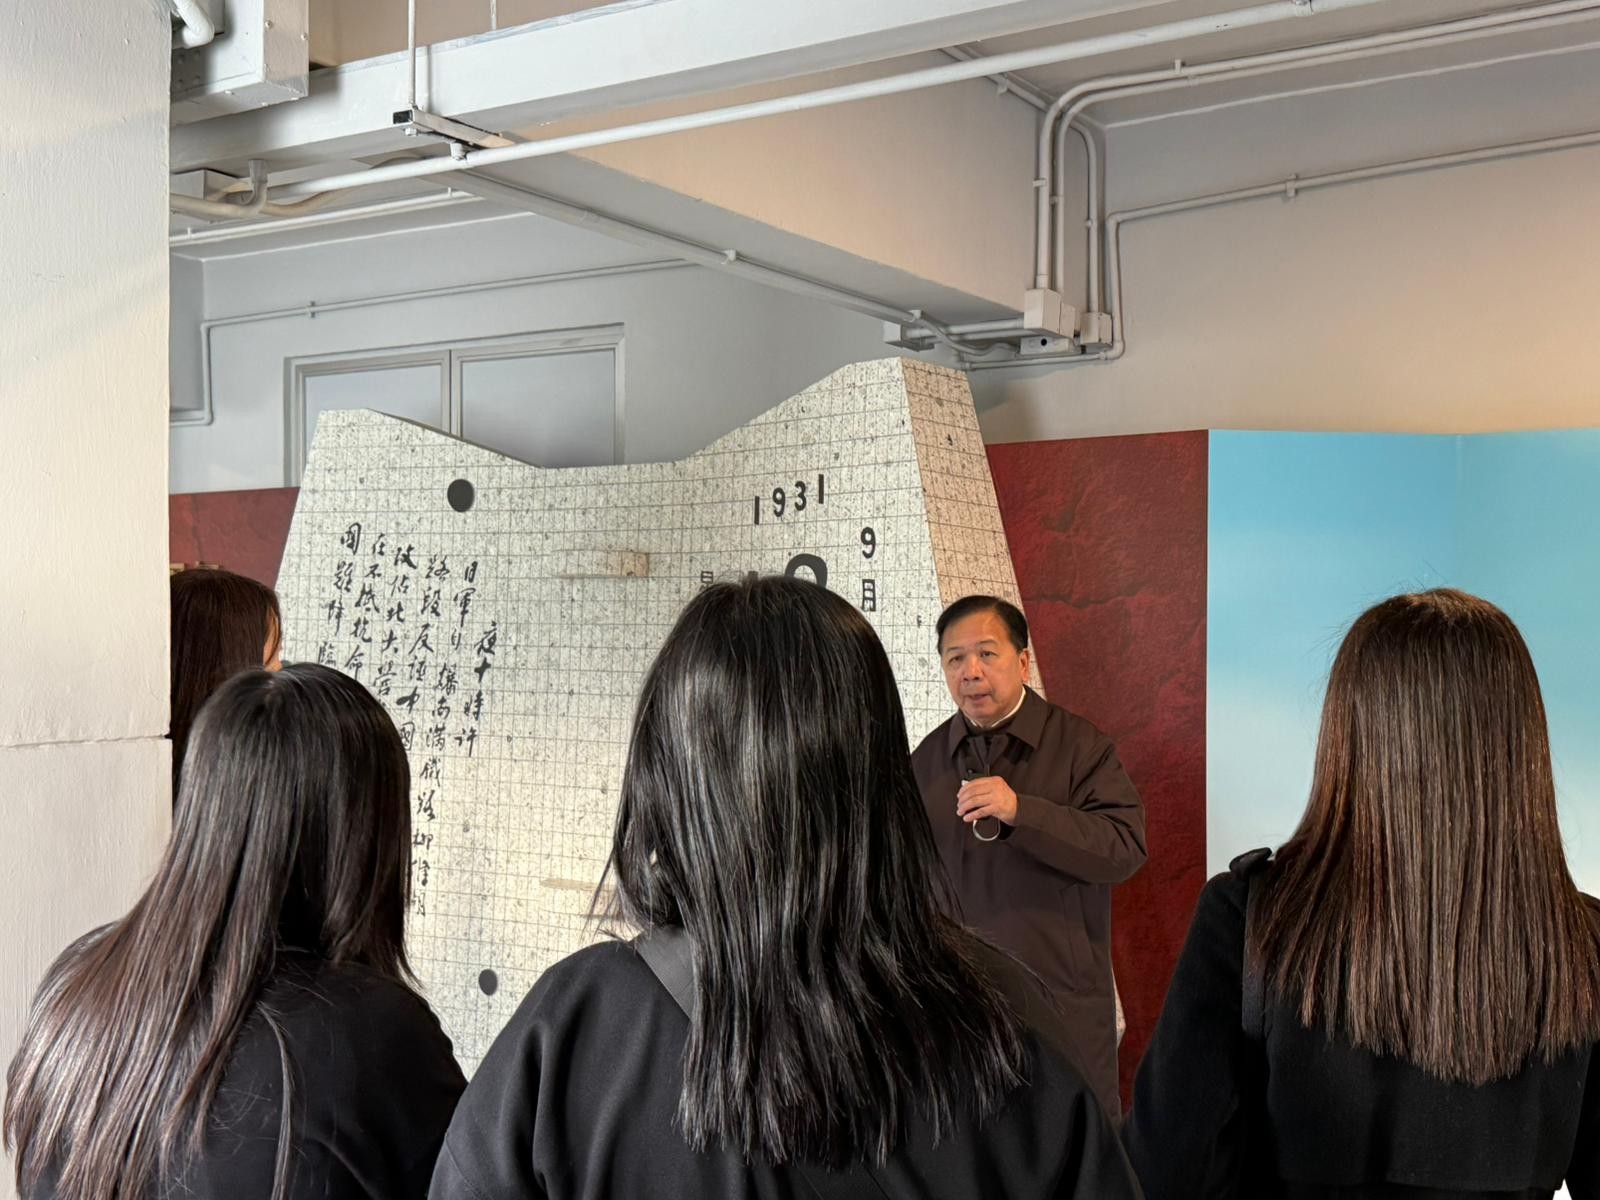 1931
9月
夜十時許
日軍自爆南滿鐵路柳條湖
路段反誣中國
攻佔北大營
在不抵抗命
國難降臨